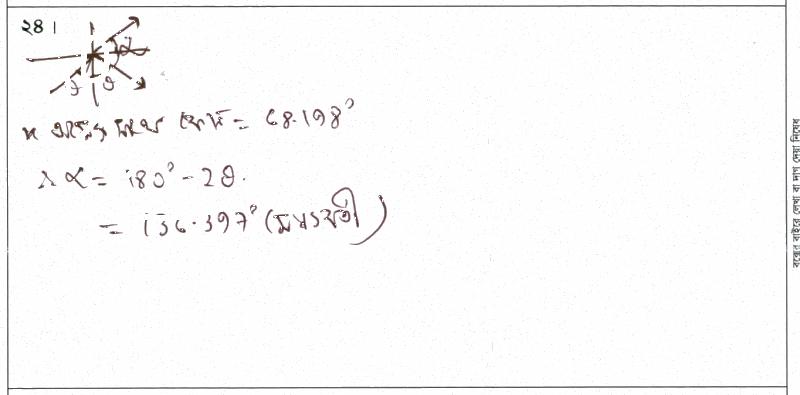 ২৪।
θ θ
x অক্ষের সাথে কোণ = 68.198°
∴ α = 180° - 2θ.
= 136.397° (মধ্যবর্তী)
বক্সের বাইরে লেখা বা দাগ দেয়া নিষেধ